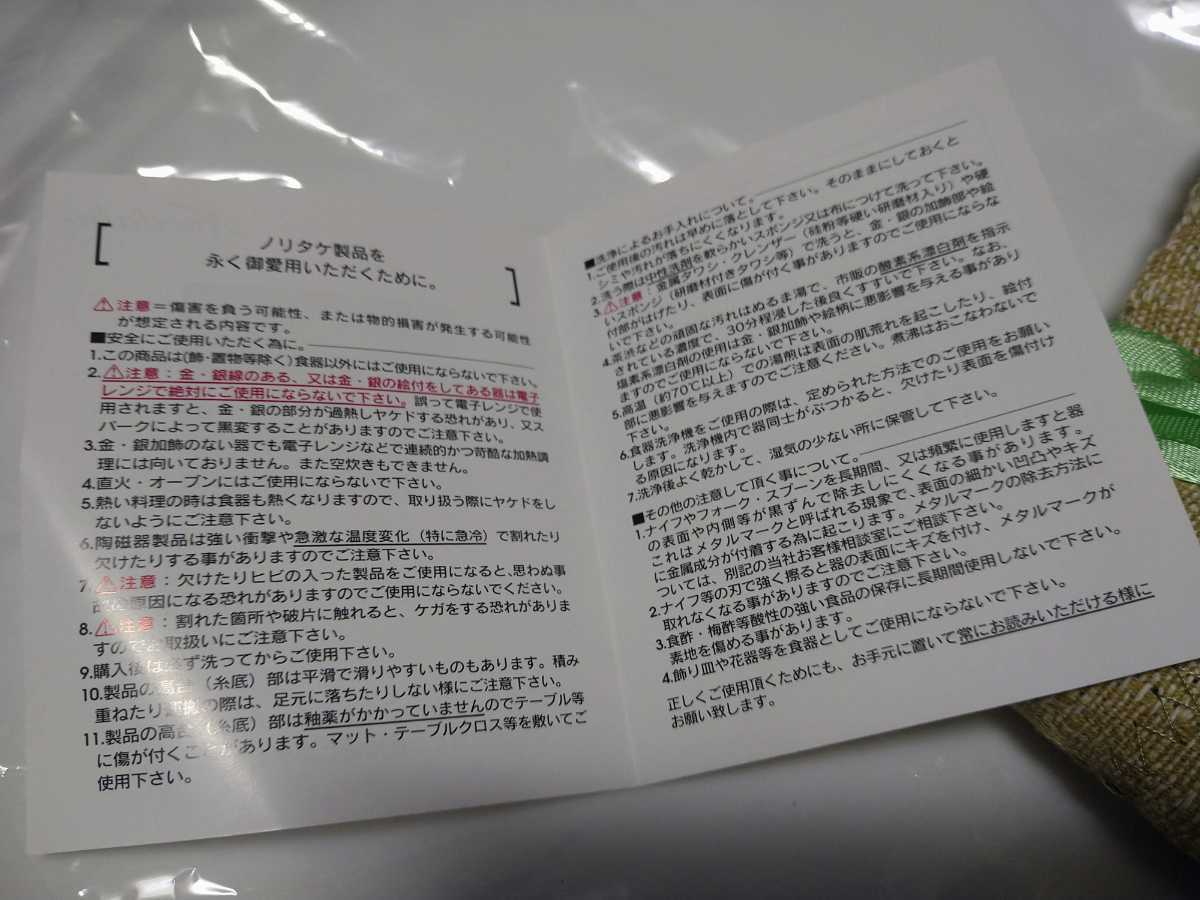 ノリタケ製品を
永く御愛用いただくために。
⚠注意=傷害を負う可能性、または物的損害が発生する可能性
が想定される内容です。
■安全にご使用いただく為に。
1.この商品は(飾・置物等除く)食器以外にはご使用にならないで下さい。
2.⚠注意:金・銀線のある、又は金・銀の絵付をしてある器は電子
レンジで絶対にご使用にならないで下さい。誤って電子レンジで使
用されますと、金・銀の部分が過熱しヤケドする恐れがあり、又ス
パークによって黒変することがありますのでご注意下さい。
3.金・銀加飾のない器でも電子レンジなどで連続的かつ苛酷な加熱調
理には向いておりません。また空炊きもできません。
4.直火・オーブンにはご使用にならないで下さい。
5.熱い料理の時は食器も熱くなりますので、取り扱う際にヤケドをし
ないようにご注意下さい。
6.陶磁器製品は強い衝撃や急激な温度変化(特に急冷)で割れたり
欠けたりする事がありますのでご注意下さい。
7.⚠注意:欠けたりヒビの入った製品をご使用になると、思わぬ事
故の原因になる恐れがありますのでご使用にならないでください。
8.⚠注意:割れた箇所や破片に触れると、ケガをする恐れがありま
すのでお取扱いにご注意下さい。
9.購入後は必ず洗ってからご使用下さい。
10.製品の高台(糸底)部は平滑で滑りやすいものもあります。積み
重ねたり の際は、足元に落ちたりしない様にご注意下さい。
11.製品の高台(糸底)部は釉薬がかかっていませんのでテーブル等
に傷が付くことがあります。マット・テーブルクロス等を敷いてご
使用下さい。
■洗浄によるお手入れについて。
1.ご使用後の汚れは早めに落として下さい。そのままにしておくと
シミや汚れが落ちにくくなります。
2.洗う際は中性洗剤を軟らかいスポンジ又は布につけて洗って下さい。
3.⚠注意:金属タワシ・クレンザー(硅粉等硬い研磨材入り)や硬
いスポンジ(研磨材付きタワシ等)で洗うと、金・銀の加飾部や絵
付部がはげたり、表面に傷が付く事がありますのでご使用にならな
いで下さい。
4.茶渋などの頑固な汚れはぬるま湯で、市販の酸素系漂白剤を指示
されている濃度で、30分程浸した後良くすすいで下さい。なお、
塩素系漂白剤の使用は金・銀加飾や絵柄に悪影響を与える事があり
ますのでご使用にならないで下さい。
5.高温(約70℃以上)での湯煎は表面の肌荒れを起こしたり、絵付
部に悪影響を与えますのでご注意ください。煮沸はおこなわないで
下さい。
6.食器洗浄機をご使用の際は、定められた方法でのご使用をお願い
します。洗浄機内で器同士がぶつかると、欠けたり表面を傷付け
る原因になります。
7.洗浄後よく乾かして、湿気の少ない所に保管して下さい。
■その他の注意して頂く事について。
1.ナイフやフォーク・スプーンを長期間、又は頻繁に使用しますと器
の表面や内側等が黒ずんで除去しにくくなる事があります。
これはメタルマークと呼ばれる現象で、表面の細かい凹凸やキズ
に金属成分が付着する為に起こります。メタルマークの除去方法に
ついては、別記の当社お客様相談室にご相談下さい。
2.ナイフ等の刃で強く擦ると器の表面にキズを付け、メタルマークが
取れなくなる事がありますのでご注意下さい。
3.食酢・梅酢等酸性の強い食品の保存に長期間使用しないで下さい。
素地を傷める事があります。
4.飾り皿や花器等を食器としてご使用にならないで下さい。
正しくご使用頂くためにも、お手元に置いて常にお読みいただける様に
お願い致します。